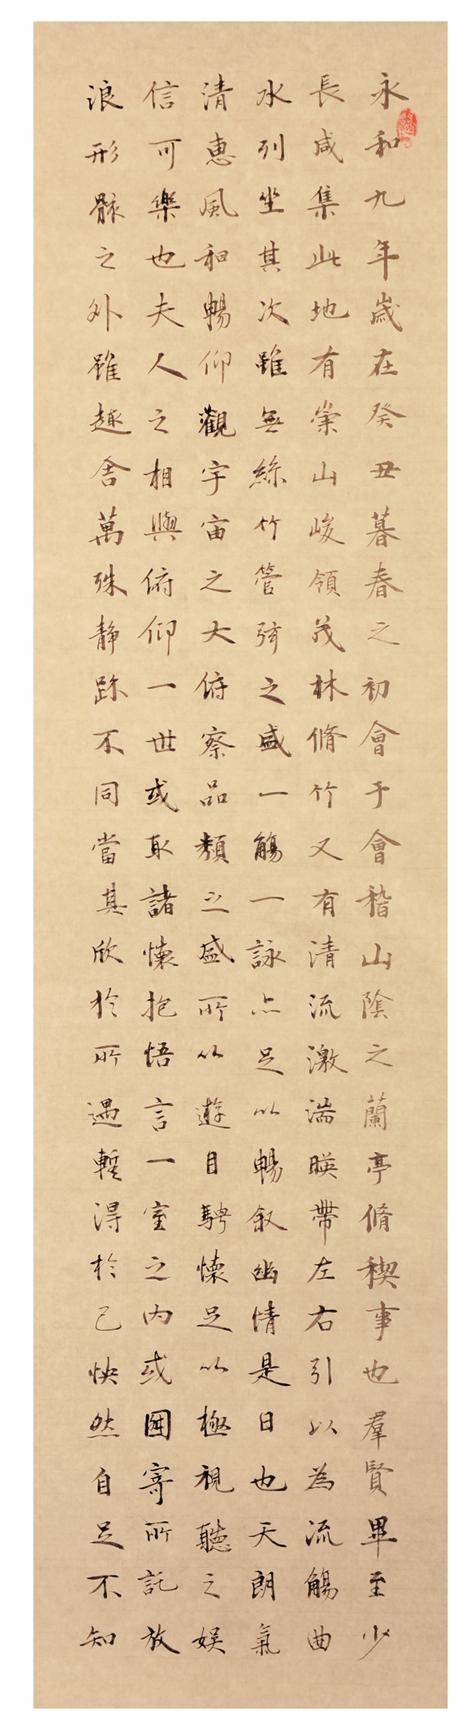 永和九年歲在癸丑暮春之初會于會稽山陰之蘭亭脩稧事也羣賢畢至少
長咸集此地有崇山峻領茂林脩竹又有清流激湍暎帶左右引以為流觴曲
水列坐其次雖無絲竹管弦之盛一觴一詠亦足以暢叙幽情是日也天朗氣
清惠風和暢仰觀宇宙之大俯察品類之盛所以遊目騁懷足以極視聽之娱
信可樂也夫人之相與俯仰一世或取諸懷抱悟言一室之内或因寄所託放
浪形骸之外雖趣舍萬殊静躁不同當其欣於所遇暫得於己快然自足不知